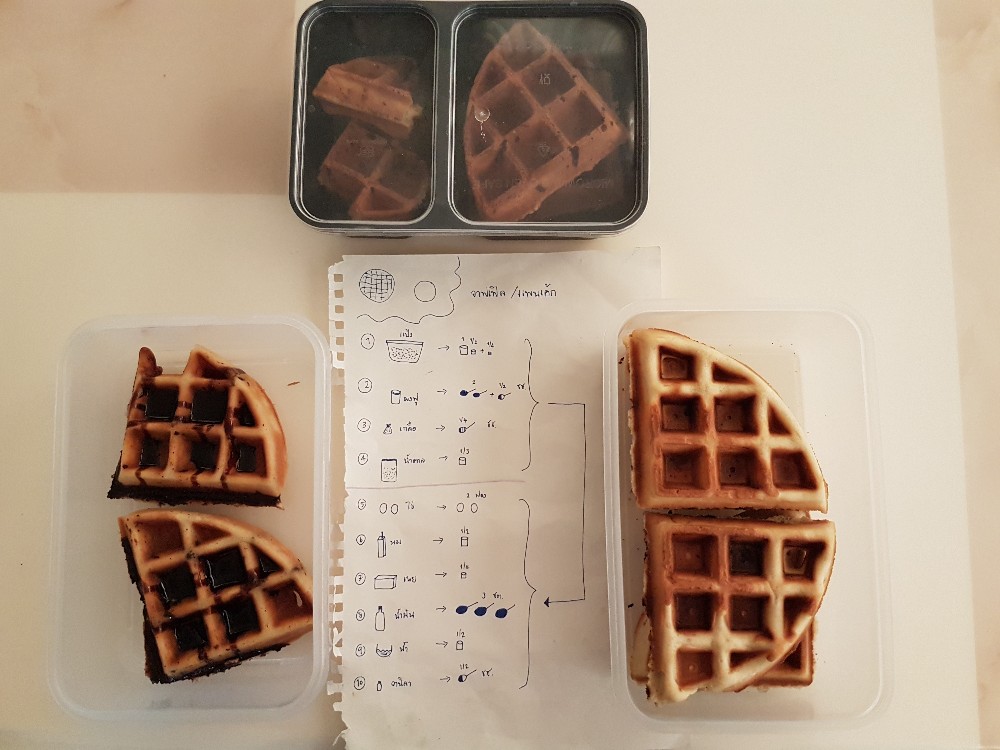 วาฟเฟิล /แพนเค้ก
① แป้ง → 1 1/2 + 1/2
② ผงฟู → 2 + 1/2 ชช.
③ เกลือ → 1/4 ชช.
④ น้ำตาล → 1/3
⑤ ไข่ → 2 ฟอง
⑥ นม → 1/2
⑦ เนย →
⑧ น้ำมัน → 3 ชต.
⑨ น้ำ → 1/2
⑩ วานิลา → 1/2 ชช.